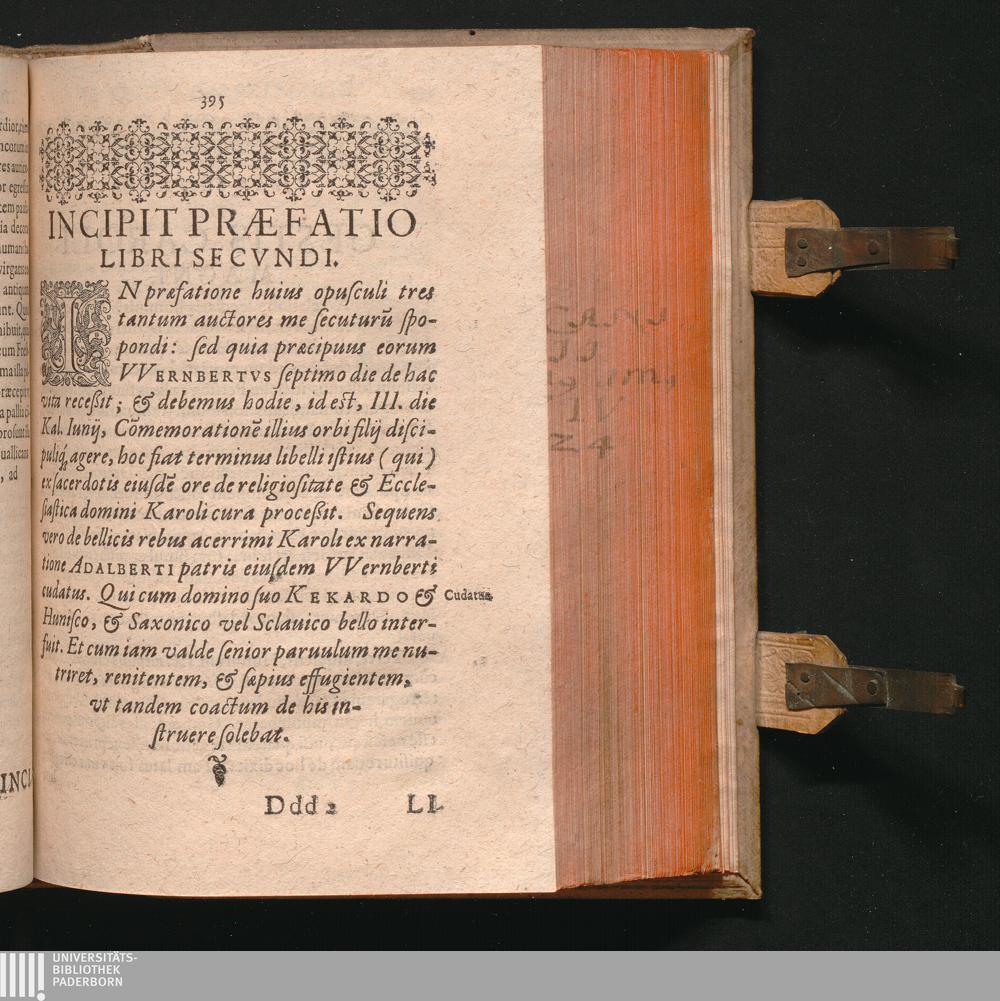 395
INCIPIT PRÆFATIO
LIBRI SECVNDI.
IN præfatione huius opuſculi tres
tantum auctores me ſecuturū ſpo-
pondi: ſed quia præcipuus eorum
VVERNBERTVS ſeptimo die de hac
vita receßit; & debemus hodie, id eſt, III. die
Kal. Iunij, Cōmemorationē illius orbi filij diſci-
puliq́, agere, hoc fiat terminus libelli iſtius (qui)
ex ſacerdotis eiuſdē ore de religioſitate & Eccle-
ſiaſtica domini Karoli cura proceßit. Sequens
vero de bellicis rebus acerrimi Karoli ex narra-
tione ADALBERTI patris eiuſdem VVernberti
cudatus. Qui cum domino ſuo KEKARDO & Cudatus
Huniſco, & Saxonico vel Sclauico bello inter-
fuit. Et cum iam valde ſenior paruulum me nu-
triret, renitentem, & ſæpius effugientem,
vt tandem coactum de his in-
ſtruere ſolebat.
Ddd 2 LI
INCI
, ad
UNIVERSITÄTS-
BIBLIOTHEK
PADERBORN